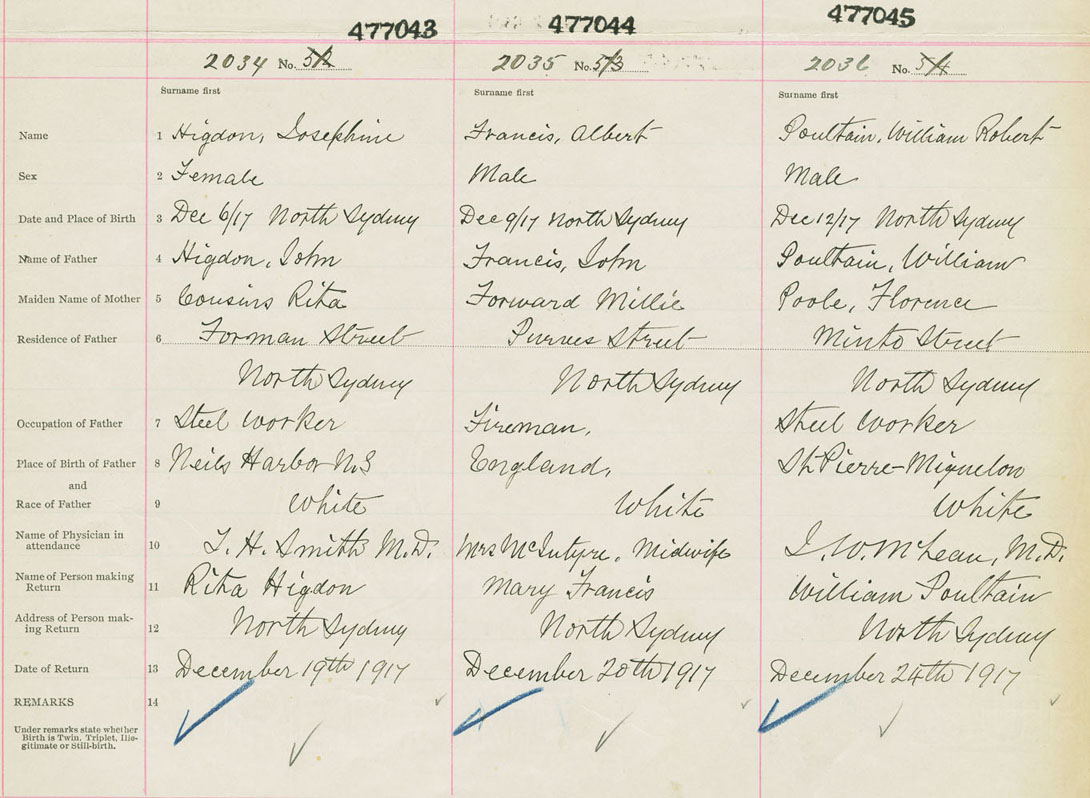 477043 477044 477045
2034 No. 5/2 2035 No. 5/3 2036 No. 5/4
Surname first Surname first Surname first
Name 1 Higdon, Josephine Francis, Albert Poultain, William Robert
Sex 2 Female Male Male
Date and Place of Birth 3 Dec 6/17 North Sydney Dec 9/17 North Sydney Dec 12/17 North Sydney
Name of Father 4 Higdon, John Francis, John Poultain, William
Maiden Name of Mother 5 Cousins Rita Forward Millie Poole, Florence
Residence of Father 6 Forman Street Purves Street Minto Street
North Sydney North Sydney North Sydney
Occupation of Father 7 Steel Worker Fireman, Steel Worker
Place of Birth of Father 8 Neils Harbor N.S England, St. Pierre-Miquelon
and
Race of Father 9 White White White
Name of Physician in
attendance 10 L. H. Smith M.D. Mrs McIntyre, Midwife J. W. McLean, M.D.
Name of Person making
Return 11 Rita Higdon Mary Francis William Poultain
Address of Person mak-
ing Return 12 North Sydney North Sydney North Sydney
Date of Return 13 December 19th 1917 December 20th 1917 December 24th 1917
REMARKS 14
Under remarks state whether
Birth is Twin. Triplet, Ille-
gitimate or Still-birth.